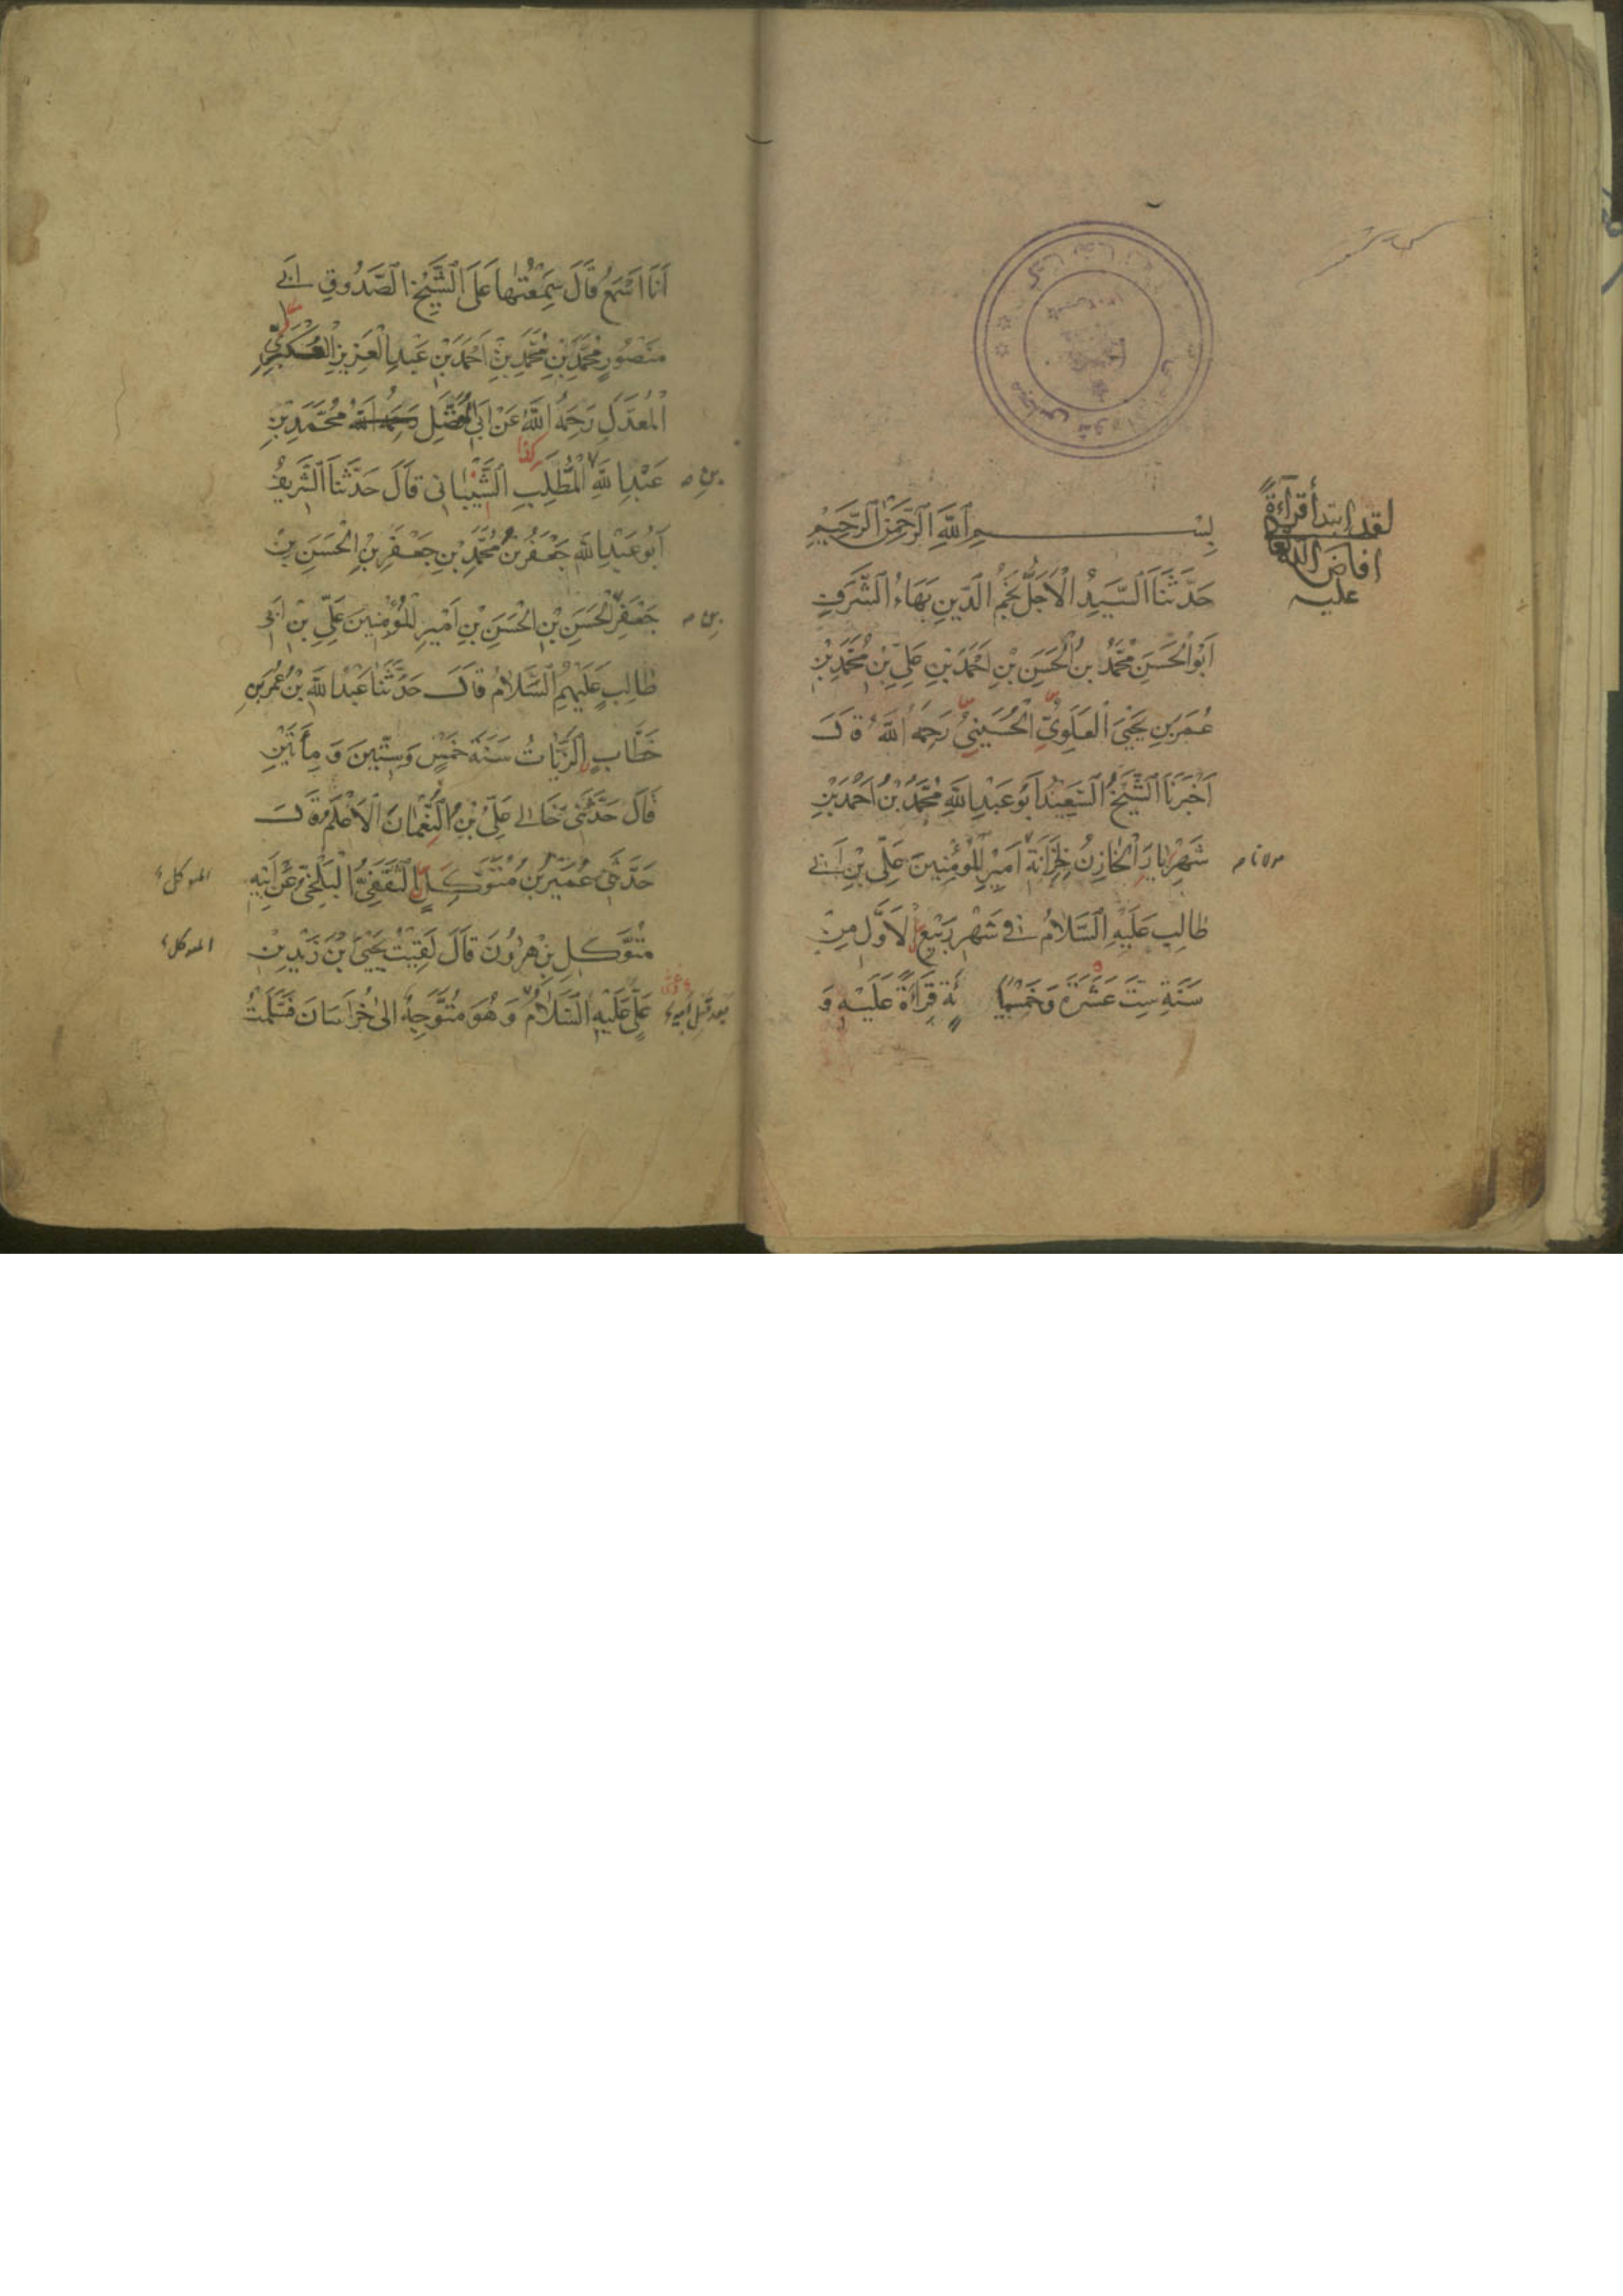 بِسْمِ اللَّهِ الرَّحْمَنِ الرَّحِيمِ
حَدَّثَنَا السَّيِّدُ الْأَجَلُّ نَجْمُ الدِّينِ بَهَاءُ الشَّرَفِ
أَبُو الْحَسَنِ مُحَمَّدُ بْنُ الْحَسَنِ بْنِ أَحْمَدَ بْنِ عَلِيِّ بْنِ مُحَمَّدِ بْنِ
عُمَرَ بْنِ يَحْيَى الْعَلَوِيُّ الْحُسَيْنِيُّ رَحِمَهُ اللَّهُ قَالَ
أَخْبَرَنَا الشَّيْخُ السَّعِيدُ أَبُو عَبْدِ اللَّهِ مُحَمَّدُ بْنُ أَحْمَدَ بْنِ
شَهْرِيَارَ الْخَازِنُ لِخِزَانَةِ أَمِيرِ الْمُؤْمِنِينَ عَلِيِّ بْنِ أَبِي
طَالِبٍ عَلَيْهِ السَّلَامُ فِي شَهْرِ رَبِيعِ الْأَوَّلِ مِنْ
سَنَةِ سِتَّ عَشْرَةَ وَخَمْسِمِائَةٍ قِرَاءَةً عَلَيْهِ وَ
لقد ابتدأ قراءةً
افاض الله
عليه
مولانا
أَنَا أَسْمَعُ قَالَ سَمِعْتُهَا عَلَى الشَّيْخِ الصَّدُوقِ أَبِي
مَنْصُورٍ مُحَمَّدِ بْنِ مُحَمَّدِ بْنِ أَحْمَدَ بْنِ عَبْدِ الْعَزِيزِ الْعُكْبَرِيِّ
الْمُعَدَّلِ رَحِمَهُ اللَّهُ عَنْ أَبِي الْمُفَضَّلِ رَحِمَهُ اللَّهُ مُحَمَّدِ بْنِ
عَبْدِ اللَّهِ الْمُطَّلِبِ الشَّيْبَانِي قَالَ حَدَّثَنَا الشَّرِيفُ
أَبُو عَبْدِ اللَّهِ جَعْفَرُ بْنُ مُحَمَّدِ بْنِ جَعْفَرِ بْنِ الْحَسَنِ بْنِ
جَعْفَرِ الْحَسَنِ بْنِ الْحَسَنِ بْنِ أَمِيرِ الْمُؤْمِنِينَ عَلِيِّ بْنِ أَبِي
طَالِبٍ عَلَيْهِمُ السَّلَامُ قَالَ حَدَّثَنَا عَبْدُ اللَّهِ بْنُ عُمَرَ بْنِ
خَطَّابٍ الزَّيَّاتُ سَنَةَ خَمْسٍ وَسِتِّينَ وَمِأَتَيْنِ
قَالَ حَدَّثَنِي خَالِي عَلِيُّ بْنُ النُّعْمَانِ الْأَعْلَمُ قَالَ
حَدَّثَنِي عُمَيْرُ بْنُ مُتَوَكِّلٍ الثَّقَفِيُّ الْبَلْخِيُّ عَنْ أَبِيهِ
مُتَوَكِّلِ بْنِ هَرُونَ قَالَ لَقِيتُ يَحْيَى بْنَ زَيْدِ بْنِ
عَلِيٍّ عَلَيْهِ السَّلَامُ وَهُوَ مُتَوَجِّهٌ إِلَى خُرَاسَانَ فَسَلَّمْتُ
كذا
بن
بن
المتوكل
المتوكل
بعد قتل ابيه